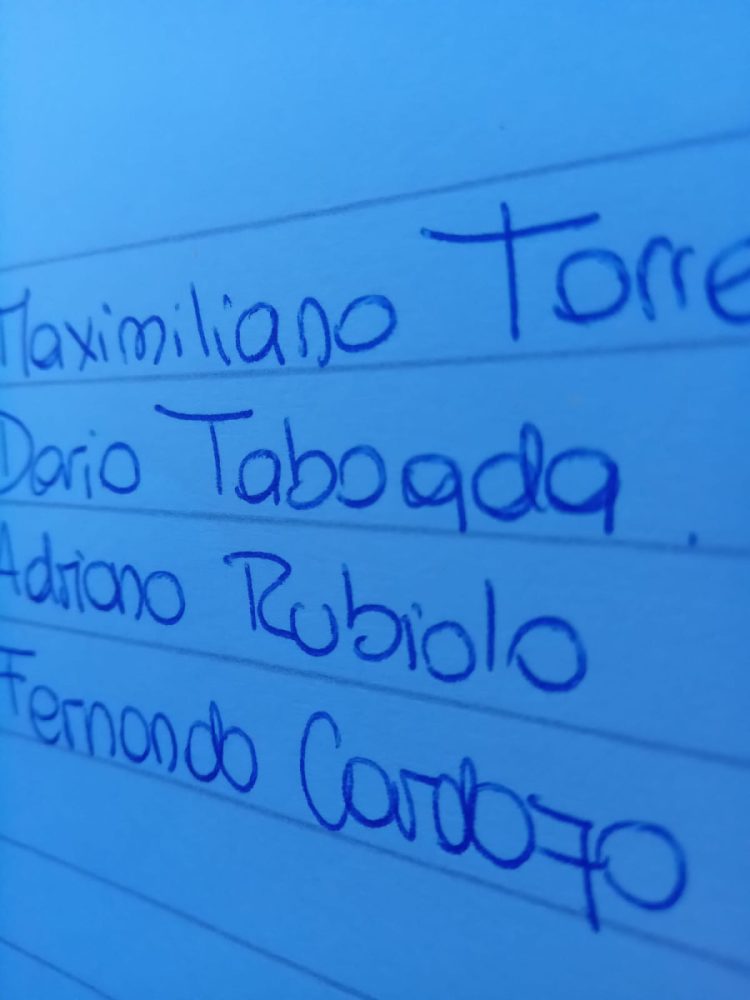 Maximiliano Torre
Dario Taboada.
Adriano Rubiolo
Fernando Cardozo